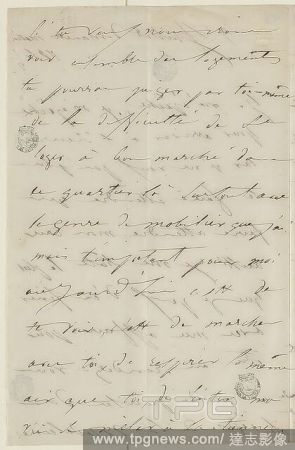 Si tu veux nous irons
voir ensemble des logements
tu pourras juger par toi-même
de la difficulté de se
loger à bon marché dans
ce quartier là surtout avec
le genre de mobilier que j'ai
mais l'important pour moi
aujourd'hui c'est de
te voir c'est de marcher
avec toi de respirer le même
air que toi de
TPG
www.tpgnews.com / 達志影像